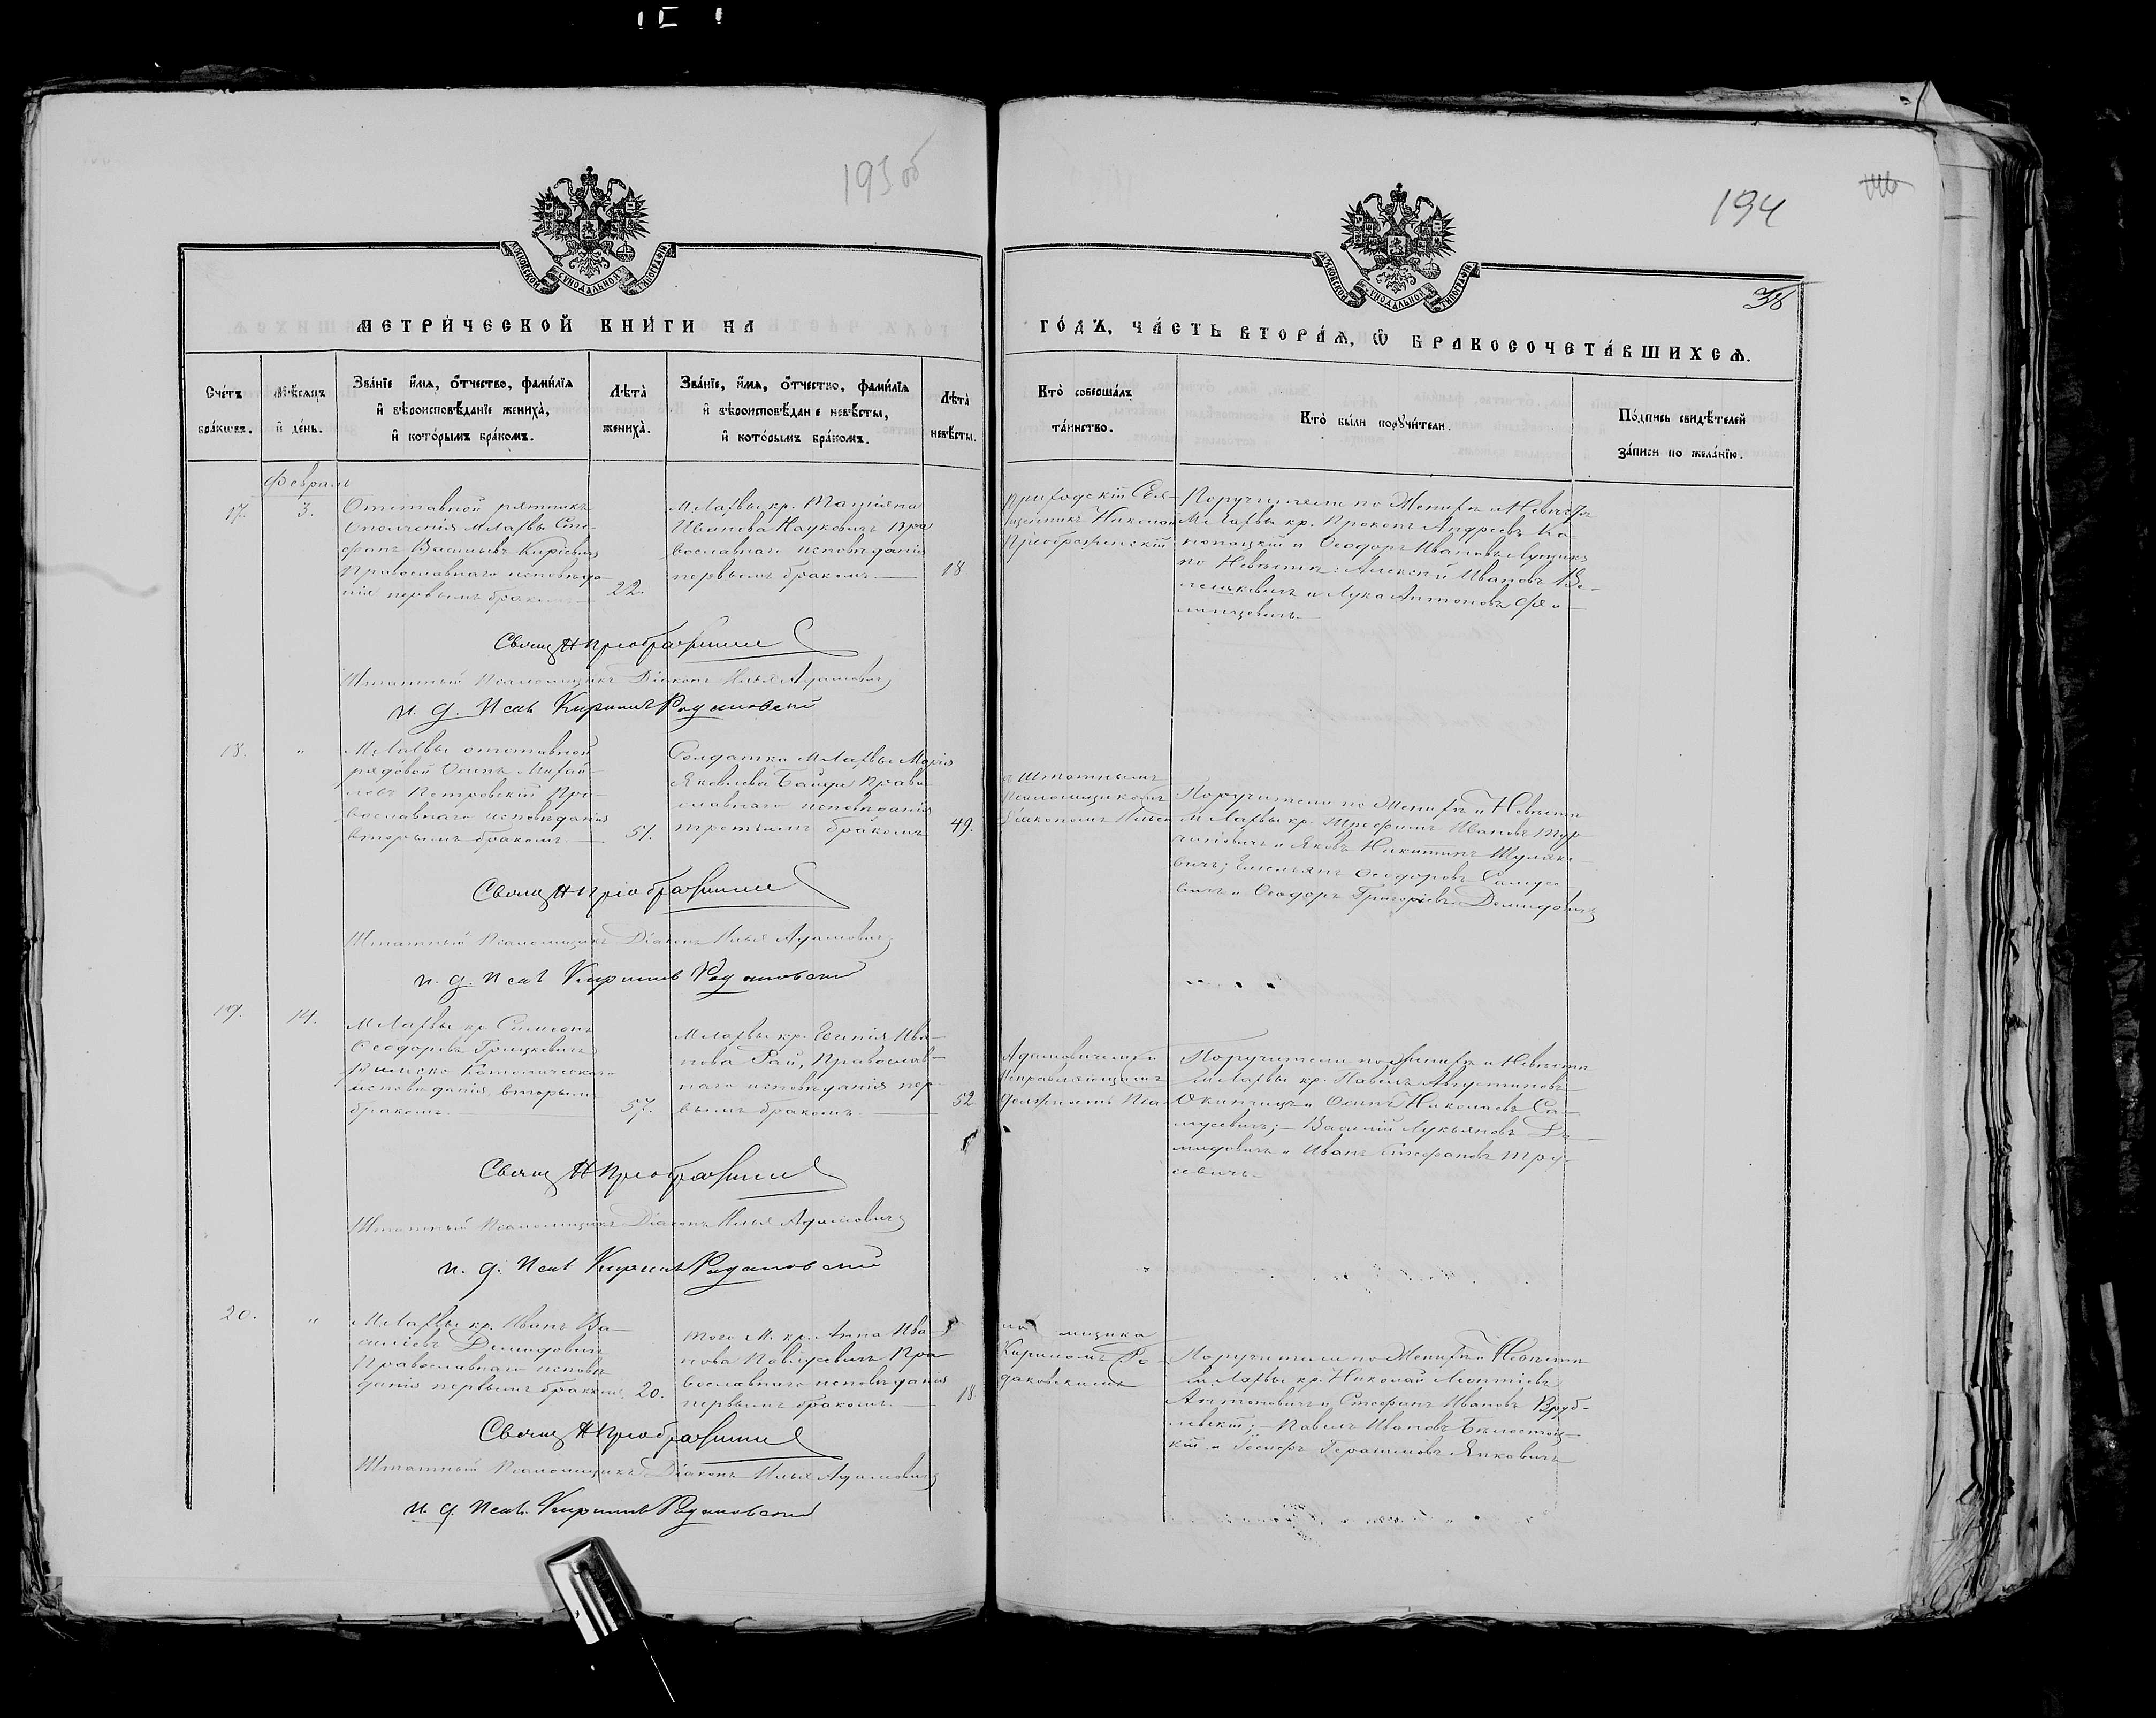 193 об
194
38
МОСКОВСКОЙ СѴНОДАЛЬНОЙ ТИПОГРАФІИ
МОСКОВСКОЙ СѴНОДАЛЬНОЙ ТИПОГРАФІИ
МЕТРИ́ЧЕСКОЙ КНИ́ГИ НА
ГО́ДЪ, ЧА́СТЬ ВТОРА́Я, Ѿ БРАКОСОЧЕТА́ВШИХСЯ.
Сче́тъ бра́ковъ.
Мѣ́сяцъ и де́нь.
Зва́нїе и́мя, о́тчество, фами́лїя
и вѣроисповѣ́данїе жениха̀,
и кото́рымъ бра́комъ.
Лѣта̀ жениха̀.
Зва́нїе, и́мя, о́тчество, фами́лїя
и вѣроисповѣ́данїе невѣ́сты,
и кото́рымъ бра́комъ.
Лѣта̀ невѣ́сты.
Кто̀ соверша́лъ та́инство.
Кто̀ бы́ли поручи́тели.
По́дпись свидѣ́телей
за́писи по жела́нїю.
Февраль
17.
3.
Отставной ратникъ
Ополченія М. Лахвы Сте-
фанъ Васильевъ Кирїевичъ
Православнаго исповѣда-
нія первымъ бракомъ
22.
М. Лахвы кр. Татіяна
Иванова Наукович Пра
вославнаго исповѣданія
первымъ бракомъ.
18.
Приходскій Свя-
щенникъ Николай
Преображенскій
Поручители по Женихѣ и Невѣстѣ
М. Лахвы кр. Прокопъ Андреевъ Ко
нопацкій и Ѳеодоръ Ивановъ Лущикъ
по Невѣстѣ: Алексѣй Ивановъ Ве-
личкевичъ и Лука Антоновъ Фи-
липцевичъ.
Свящ Н Преображенскій
Штатный Псаломщикъ Діаконъ Илья Адамовичъ
И. д. Псал Кириллъ Радаковскій
18.
"
М. Лахвы отставной
рядовой Осипъ Михай-
ловъ Петровскій Пра-
вославнаго исповѣданія
вторымъ бракомъ.
51.
Солдатка М. Лахвы Марія
Яковлева Байда Право
славнаго исповѣданія
третьимъ бракомъ
49.
съ Штатнымъ
Псаломщикомъ
Діакономъ Ильею
Поручители по Женихѣ и Невѣстѣ
М. Лахвы кр. Трофимъ Ивановъ Тур-
Яковъ Никитинъ Шуляко-
вичъ; Емельянъ Ѳеодоровъ Самусе
вичъ и Ѳеодоръ Григорьевъ Демидовичъ
Свящ Н Преображенскій
Штатный Псаломщикъ Діаконъ Илья Адамовичъ
И. д. Псал Кириллъ Радаковскій
19.
14.
М. Лахвы кр. Симеонъ
Ѳеодоровъ Грицкевичъ
Римско Католическаго
исповѣданія вторымъ
бракомъ.
57.
М. Лахвы кр. Евгенія Ива-
нова Рай, Православ-
наго исповѣданія пер-
вымъ бракомъ.
52.
Адамовичемъ и
Исправляющимъ
должность Пса-
Поручители по Женихѣ и Невѣстѣ
М. Лахвы кр. Павелъ Августиновъ
Окинчицъ и Осипъ Николаевъ Са-
мусевичъ; Василій Лукьяновъ Де-
мидовичъ и Иванъ Стефановъ Тру-
севичъ.
Свящ Н Преображенскій
Штатный Псаломщикъ Діаконъ Илья Адамовичъ
И. д. Псал Кириллъ Радаковскій
20.
"
М. Лахвы кр. Иванъ Ва-
силіевъ Демидовичъ
Православнаго исповѣ
данія первымъ бракомъ.
20.
того М. кр. Анна Ива-
нова Пра
вославнаго исповѣданія
первымъ бракомъ.
18.
ло мщика
Кириломъ Ра-
даковскимъ
Поручители по Женихѣ и Невѣстѣ
М. Лахвы кр. Николай Леонтіевъ
Антоновичъ и Стефанъ Ивановъ Вруб-
левскій; Павелъ Ивановъ Бѣлостоц-
кій и Герасимовъ Янковичъ
Свящ Н Преображенскій
Штатный Псаломщикъ Діаконъ Илья Адамовичъ
И. д. Псал. Кириллъ Радаковскій